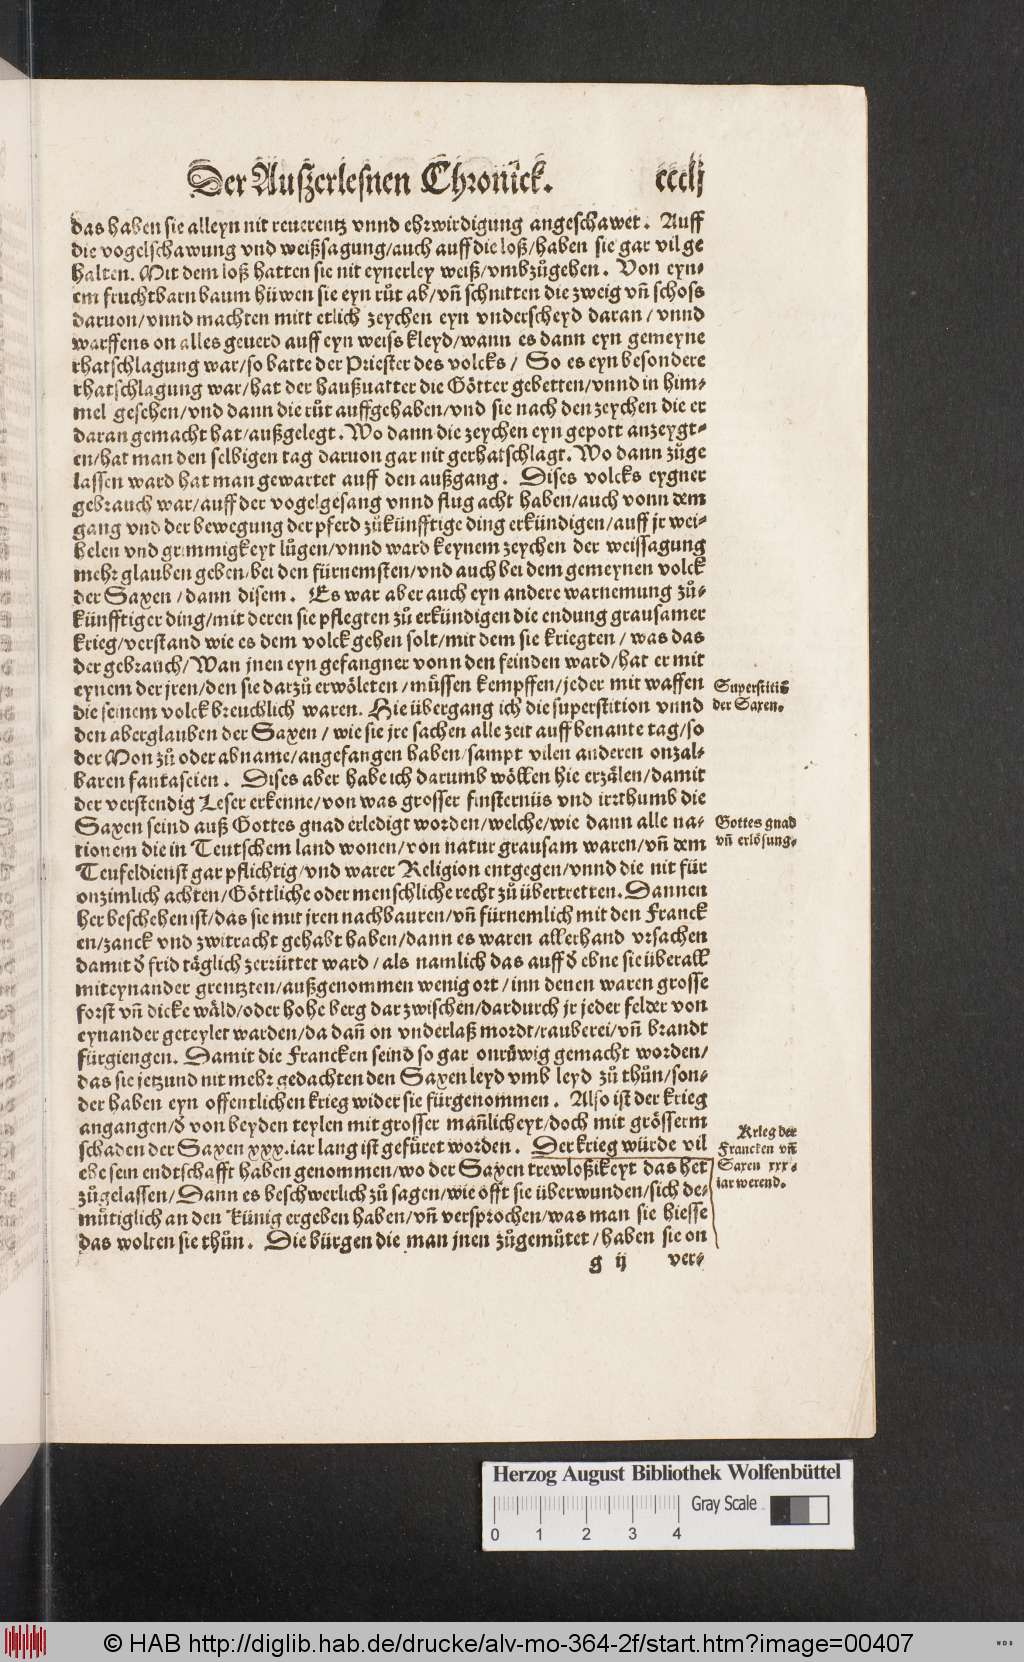 Der Außerlesnen Chronick. ccclj
das haben sie alleyn nit reuerentz vnnd ehrwirdigung angeschawet. Auff
die vogelschawung vnd weißsagung/auch auff die loß/haben sie gar vil ge
halten. Mit dem loß hatten sie nit eynerley weiß/vmbzůgehen. Von eyn-
em fruchtbarn baum hüwen sie eyn růt ab/vñ schnitten die zweig vñ schoss
daruon/vnnd machten mitt etlich zeychen eyn vnderscheyd daran/vnnd
warffens on alles geuerd auff eyn weiss kleyd/wann es dann eyn gemeyne
rhatschlagung war/so batte der Priester des volcks/ So es eyn besondere
rhatschlagung war/hat der haußuatter die Götter gebetten/vnnd in him-
mel gesehen/vnd dann die růt auffgehaben/vnd sie nach den zeychen die er
daran gemacht hat/außgelegt. Wo dann die zeychen eyn gepott anzeygt-
en/hat man den selbigen tag daruon gar nit gerhatschlagt. Wo dann zůge
lassen ward hat man gewartet auff den außgang. Dises volcks eygner
gebrauch war/auff der vogelgesang vnnd flug acht haben/auch vonn dem
gang vnd der bewegung der pferd zůkünfftige ding erkündigen/auff jr wei-
belen vnd grimmigkeyt lůgen/vnnd ward keynem zeychen der weissagung
mehr glauben geben/bei den fürnemsten/vnd auch bei dem gemeynen volck
der Saxen/dann disem. Es war aber auch eyn andere warnemung zů-
künfftiger ding/mit deren sie pflegten zů erkündigen die endung grausamer
krieg/verstand wie es dem volck gehen solt/mit dem sie kriegten/was das
der gebrauch/Wan jnen eyn gefangner vonn den feinden ward/hat er mit
eynem der jren/den sie darzů erwöleten/müssen kempffen/jeder mit waffen
die seinem volck breuchlich waren. Hie übergang ich die superstition vnnd
den aberglauben der Saxen/wie sie jre sachen alle zeit auff benante tag/so
der Mon zů oder abname/angefangen haben/sampt vilen anderen onzal-
baren fantaseien. Dises aber habe ich darumb wöllen hie erzälen/damit
der verstendig Leser erkenne/von was grosser finsternüs vnd irrthumb die
Saxen seind auß Gottes gnad erledigt worden/welche/wie dann alle na-
tionem die in Teutschem land wonen/von natur grausam waren/vñ dem
Teufeldienst gar pflichtig/vnd warer Religion entgegen/vnnd die nit für
onzimlich achten/Göttliche oder menschliche recht zů übertretten. Dannen
her bescheben ist/das sie mit jren nachbauren/vñ fürnemlich mit den Franck
en/zanck vnd zwitracht gehabt haben/dann es waren allerhand vrsachen
damit d̄ frid täglich zerrüttet ward/als namlich das auff d̄ ebne sie überall
miteynander grentzten/außgenommen wenig ort/inn denen waren grosse
forst vñ dicke wäld/oder hohe berg darzwischen/dardurch jr jeder felder von
eynander geteylet warden/da dañ on vnderlaß mordt/rauberei/vñ brandt
fürgiengen. Damit die Francken seind so gar onrüwig gemacht worden/
das sie jetzund nit mehr gedachten den Saxen leyd vmb leyd zů thůn/son-
der haben eyn offentlichen krieg wider sie fürgenommen. Also ist der krieg
angangen/d̄ von beyden teylen mit grosser mañlicheyt/doch mit grösserm
schaden der Saxen xxx.iar lang ist gefüret worden. Der krieg würde vil
ehe sein endtschafft haben genommen/wo der Saxen trewloßikeyt das het
zůgelassen/Dann es beschwerlich zů sagen/wie offt sie überwunden/sich de-
mütiglich an den Künig ergeben haben/vñ versprochen/was man sie hiesse
das wolten sie thůn. Die bürgen die man jnen zůgemůtet/haben sie on
g ij ver-
Superstitiõ
der Saxen.
Gottes gnad
vñ erlösung.
Krieg der
Francken vñ
Saxen xxx.
iar werend.
Herzog August Bibliothek Wolfenbüttel
Gray Scale
0 1 2 3 4
© HAB http://diglib.hab.de/drucke/alv-mo-364-2f/start.htm?image=00407